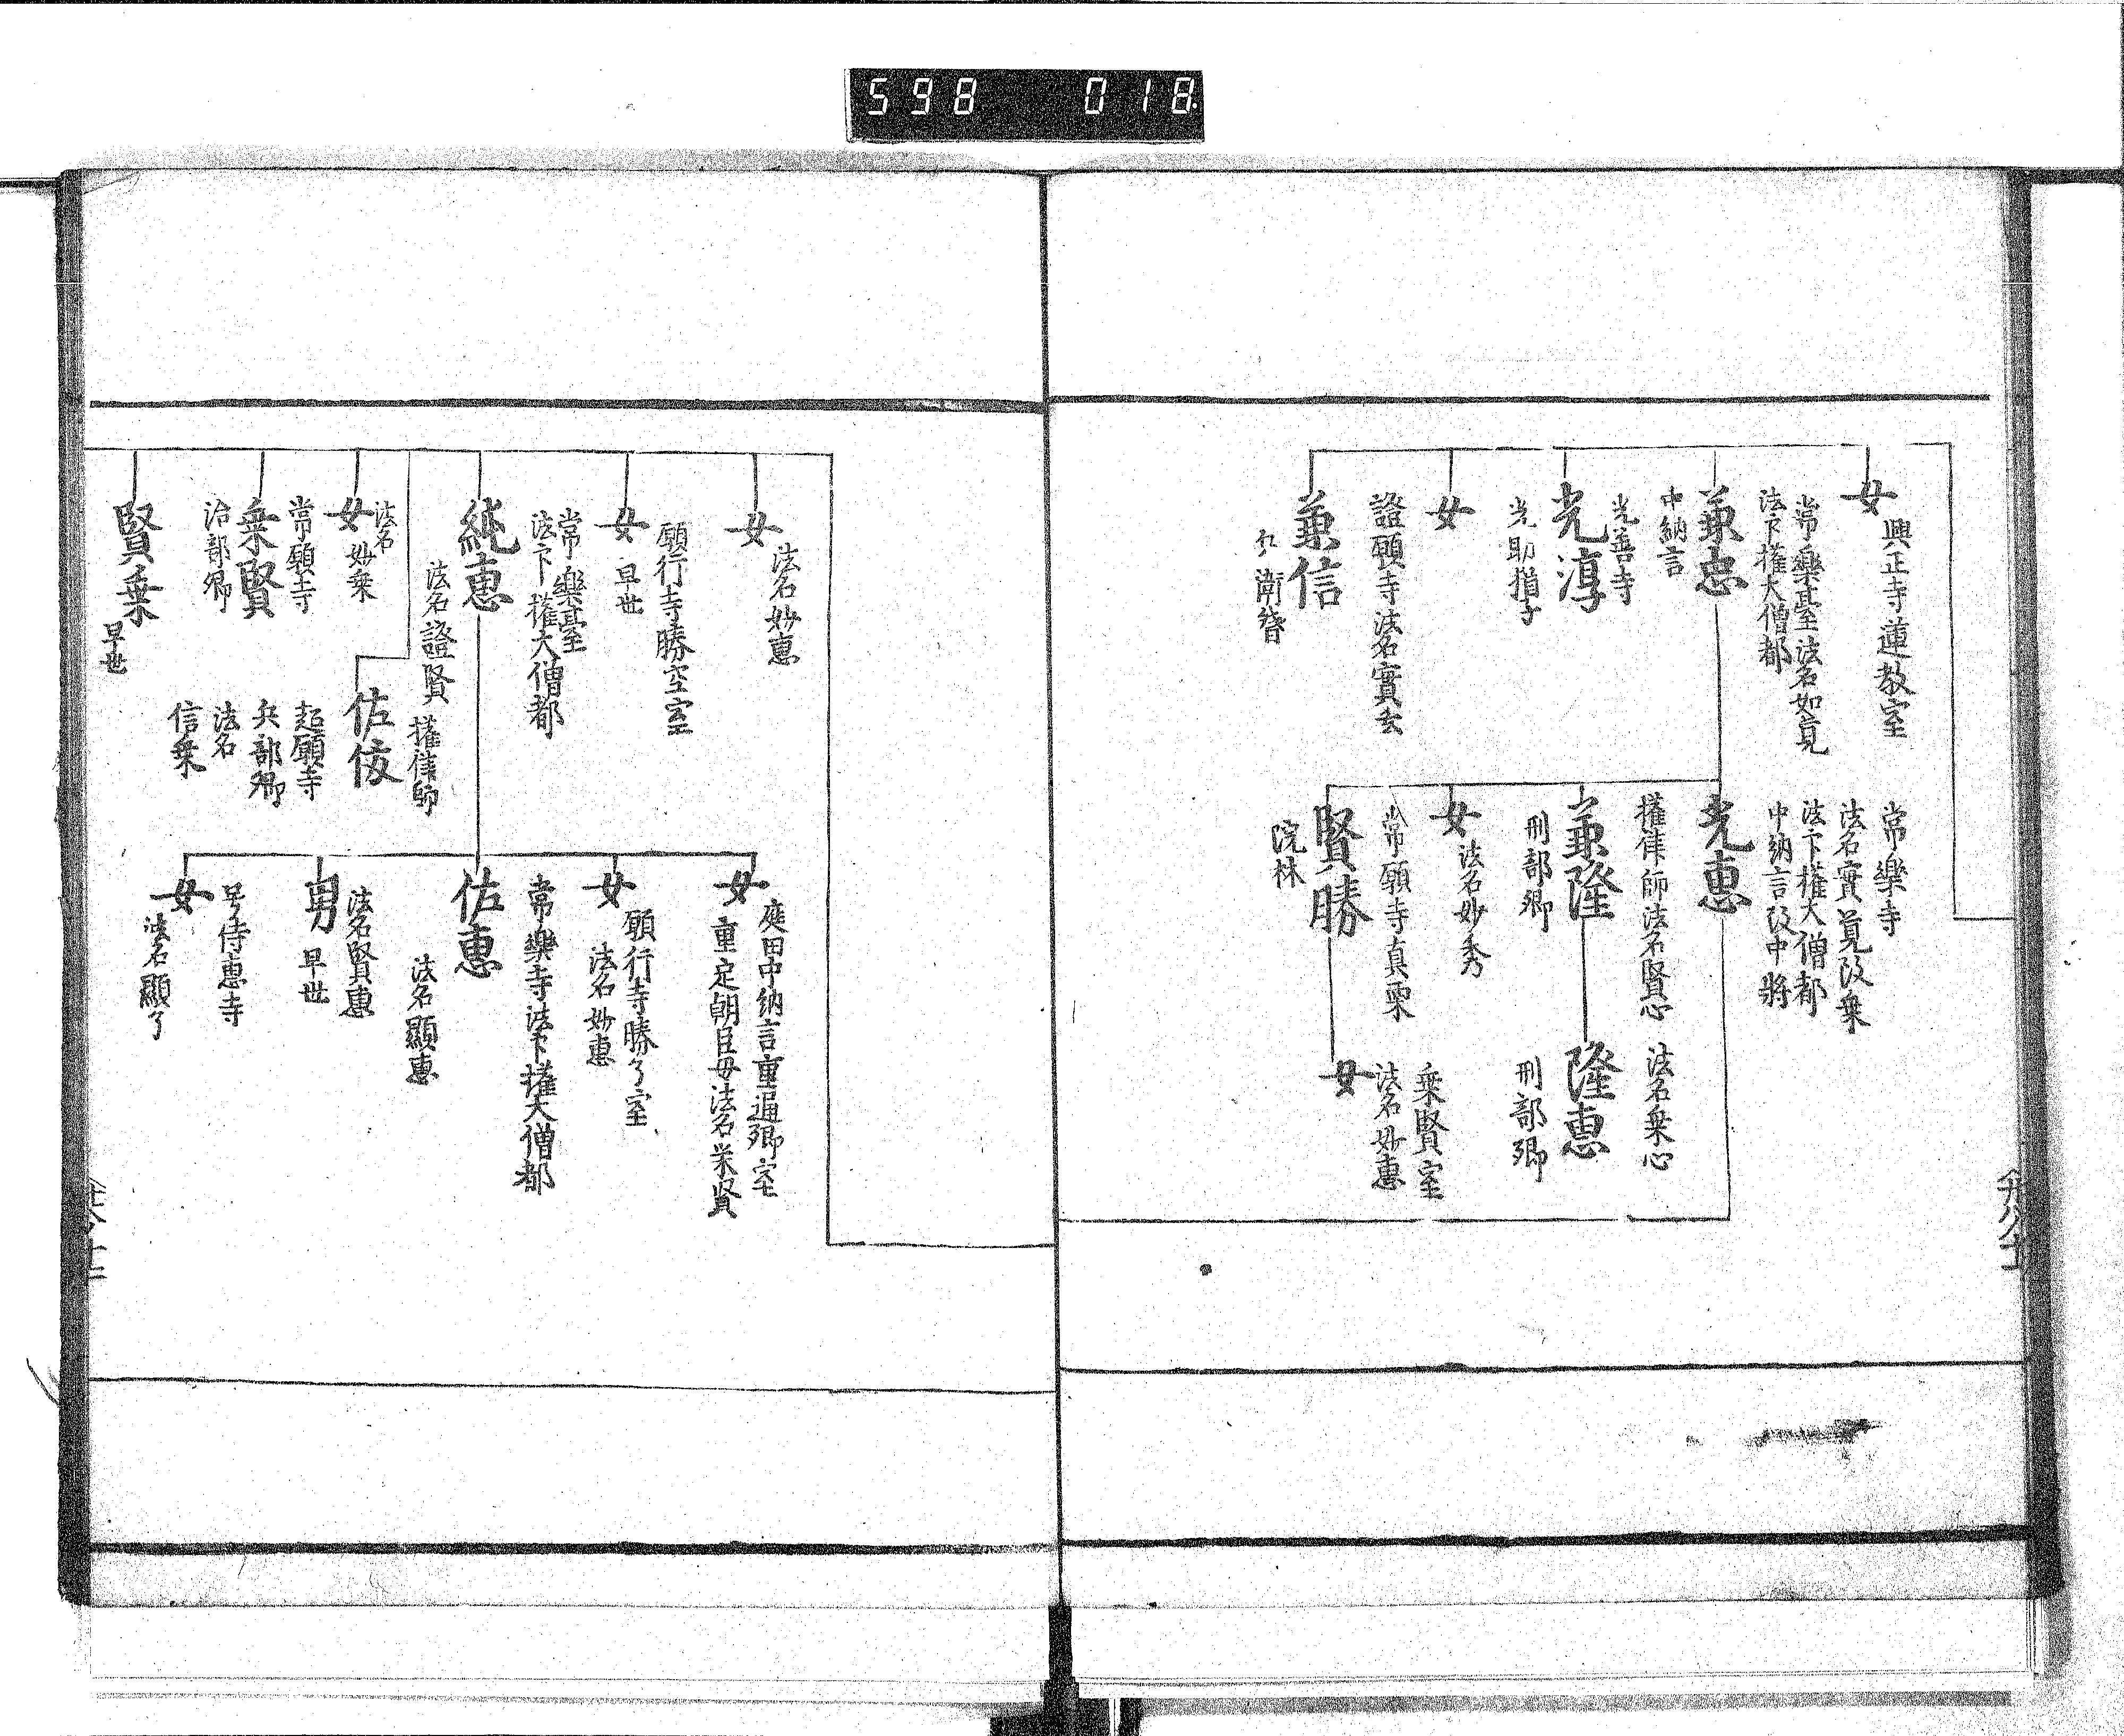 598 018
女
興正寺蓮教室
常樂臺法名如覓
法下權大僧都
兼忠
中納言
光善寺
光淳
光助猶子
女
證願寺法名實玄
兼信
左衛督
常樂寺
法名實覓改乗
法下權大僧都
中納言改中將
光惠
權律師法名賢心
兼隆
刑部卿
女
法名妙秀
常願寺真栗
賢勝
院林
法名乗心
隆惠
刑部卿
乗賢室
法名妙惠
女
女
法名妙惠
願行寺勝空室
女
早世
常樂臺
法下權大僧都
純惠
法名證賢
權律師
法名
女
妙乗
佐伩
起願寺
兵部卿
法名
信乗
常願寺
乗賢
治部卿
賢乗
早世
庭田中納言重通卿室
重定朝臣母法名栄賢
女
願行寺勝了室
法名妙惠
女
常樂寺法下權大僧都
佐惠
法名顯惠
法名賢惠
男
早世
号侍惠寺
女
法名顯了